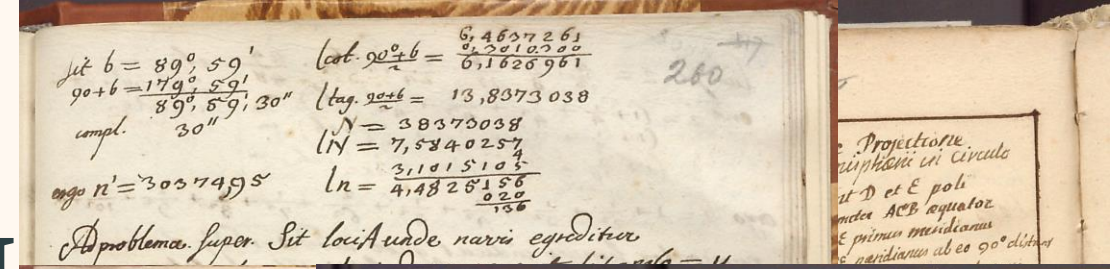 sit b = 89°, 59'
90+b = 179°, 59'
89°, 59', 30"
compl. 30"
ergo n' = 30374,95
lcot. 90°+b/2 = 6,4637261
0,3010300
6,1626961
ltag. 90+b/2 = 13,8373038
N = 38373038
lN = 7,5840257
4
3,1015105
ln = 4,4825156
020
136
260
Ad problema super. Sit loci A unde navis egreditur
Projectione
in Circulo
D et E poli
ACB æquator
E primus meridianus
E meridianus ab eo 90° distans